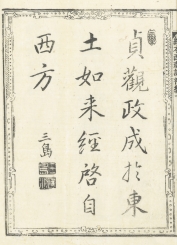 貞觀政成於東
土如来經啓自
西方
三島